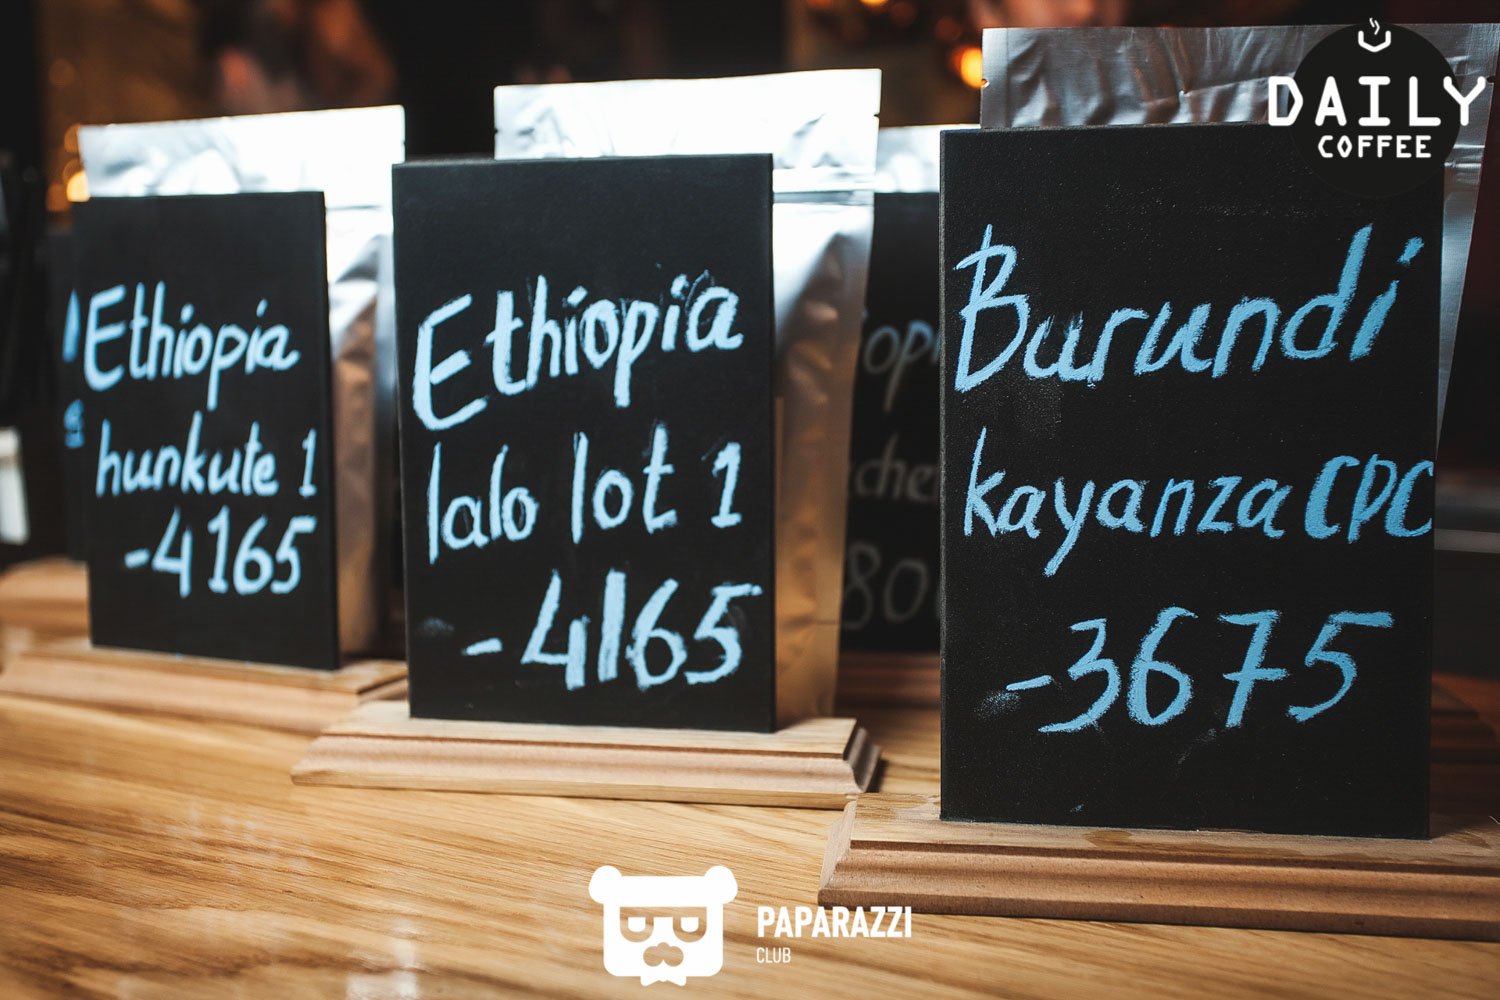 Ethiopia
hunkute 1
-4165
Ethiopia
lalo lot 1
-4165
Burundi
kayanza CPC
-3675
DAILY
COFFEE
PAPARAZZI
CLUB